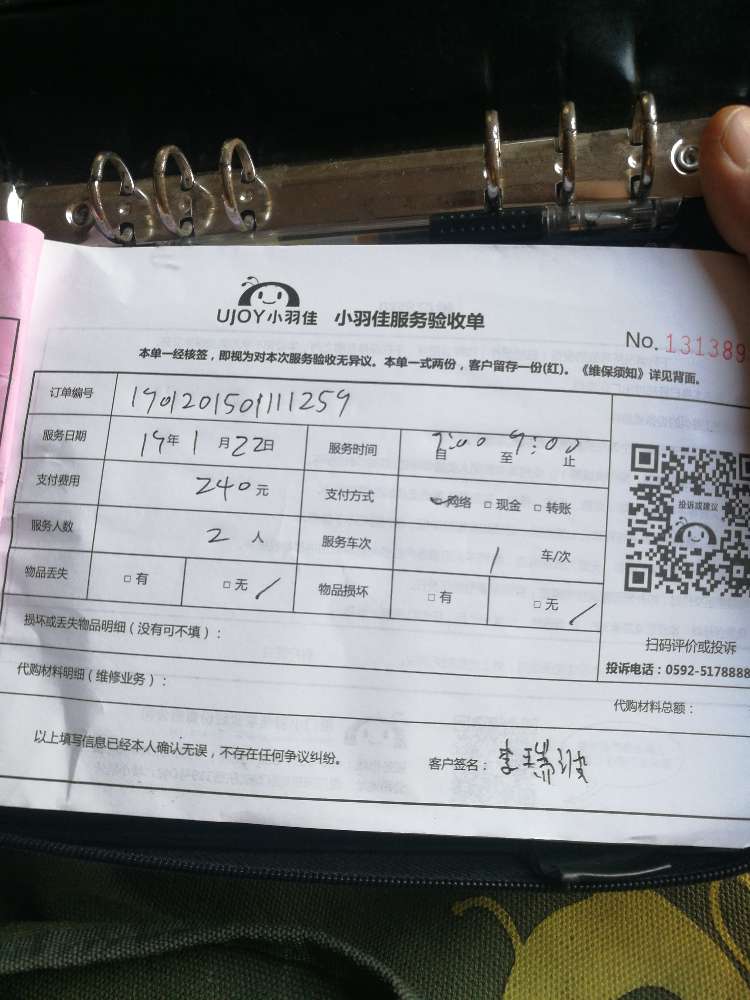 UJOY小羽佳 小羽佳服务验收单
No. 131389
本单一经核签，即视为对本次服务验收无异议。本单一式两份，客户留存一份(红)。《维保须知》详见背面。
订单编号 190120150111259
服务日期 19年 1月 22日 服务时间 自 至 9:00 止
支付费用 240元 支付方式 网络 □现金 □转账
服务人数 2人 服务车次 1 车/次
物品丢失 □有 □无 物品损坏 □有 □无
投诉或建议
扫码评价或投诉
投诉电话：0592-5178888
损坏或丢失物品明细（没有可不填）：
代购材料明细（维修业务）：
代购材料总额：
以上填写信息已经本人确认无误，不存在任何争议纠纷。 客户签名：李瑞波